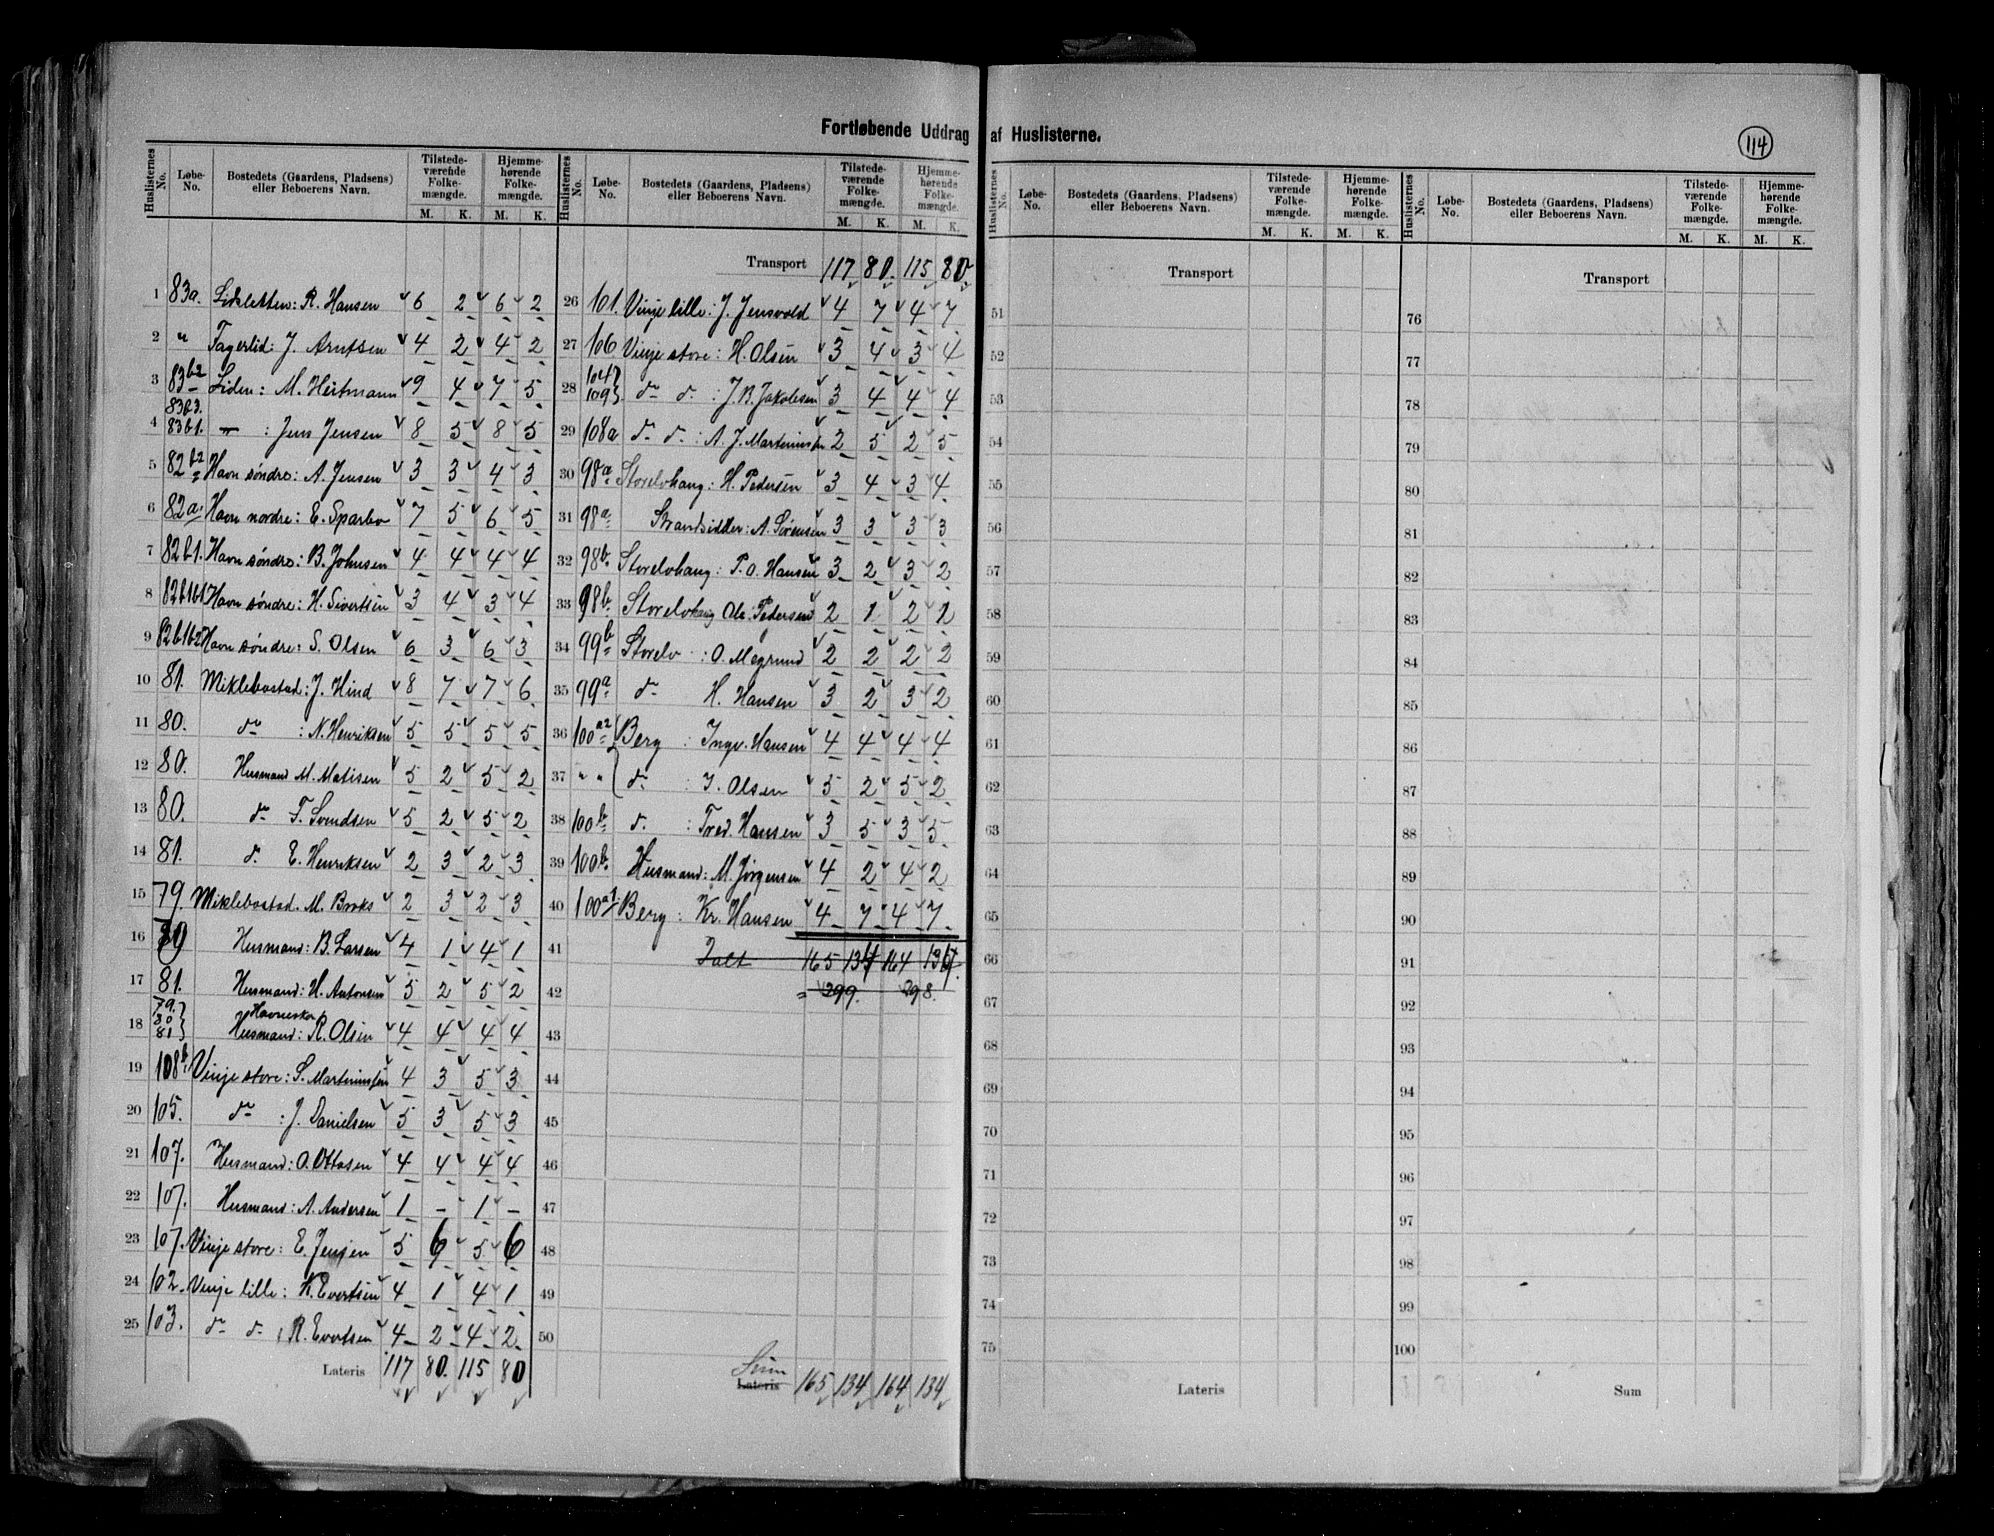 Fortløbende Uddrag af Huslisterne.
114
Huslisternes No. Løbe-No. Bostedets (Gaardens, Pladsens) eller Beboerens Navn. Tilstedeværende Folkemængde. M. K. Hjemmehørende Folkemængde. M. K.
1 83a. Lidsletten: R. Hansen 6 2 6 2
2 " Fagerlid: J. Arntsen 4 2 4 2
3 83b2 Liden: M. Heitmann 9 4 7 5
4 83b3. 83b1. — : Jens Jensen 8 5 8 5
5 82b2 Havn søndre: A. Jensen 3 3 4 3
6 82a. Havn nordre: E. Sparbo 7 5 6 5
7 82b1. Havn søndre: B. Johnsen 4 4 4 4
8 82b1b1 Havn søndre: H. Sivertsen 3 4 3 4
9 82b1b2 Havn søndre: S. Olsen 6 3 6 3
10 81. Miklebostad: J. Hind 8 7 7 6
11 80. do : N. Henriksen 5 5 5 5
12 80. Husmand M. Matisen 5 2 5 2
13 80. do F. Svendsen 5 2 5 2
14 81. d. E. Henriksen 2 3 2 3
15 79. Miklebostad. M. Broks 2 3 2 3
16 79 Husmand: B. Larsen 4 1 4 1
17 81. Husmand: H. Antonsen 5 2 5 2
18 79. 80 81 Havneskar Husmand: R. Olsen 4 4 4 4
19 108b. Vinje store: S. Martinussen 4 3 5 3
20 105. do : J. Danielsen 5 3 5 3
21 107. Husmand: O. Ottosen 4 4 4 4
22 107. Husmand: A. Andersen 1 - 1 -
23 107. Vinje store: E. Jensen 5 6 5 6
24 102. Vinje lille: K. Evertsen 4 1 4 1
25 103. do do : R. Evertsen 4 2 4 2
Lateris 117 80. 115 80
Huslisternes No. Løbe-No. Bostedets (Gaardens, Pladsens) eller Beboerens Navn. Tilstedeværende Folkemængde. M. K. Hjemmehørende Folkemængde. M. K.
Transport 117 80. 115 80
26 101. Vinje lille: J. Jensvold 4 7 4 7
27 106 Vinje store: H. Olsen 3 4 3 4
28 104 109 do do : J. B. Jakobsen 3 4 4 4
29 108a do do : A. J. Martinussen 2 5 2 5
30 98a Storelvhaug: H. Pedersen 3 4 3 4
31 98a Strandsidder: A. Sørensen 3 3 3 3
32 98b. Storelvhaug: P. O. Hansen 3 2 3 2
33 98b. Storelvhaug Ole Pedersen 2 1 2 1
34 99b Storelv : O. Megrund 2 2 2 2
35 99a do H. Hansen 3 2 3 2
36 100a2 Berg : Ingv. Hansen 4 4 4 4
37 " " d. : J. Olsen 5 2 5 2
38 100b d. : Fred. Hansen 3 5 3 5
39 100b. Husmand: M. Jørgensen 4 2 4 2
40 100a1. Berg : Kr. Hansen 4 7 4 7
41 Ialt 165 134 164 134
42 = 299. 298.
43
44
45
46
47
48
49
50
Sum Lateris 165 134 164 134
Huslisternes No. Løbe-No. Bostedets (Gaardens, Pladsens) eller Beboerens Navn. Tilstedeværende Folkemængde. M. K. Hjemmehørende Folkemængde. M. K.
Transport
51
52
53
54
55
56
57
58
59
60
61
62
63
64
65
66
67
68
69
70
71
72
73
74
75
Lateris
Huslisternes No. Løbe-No. Bostedets (Gaardens, Pladsens) eller Beboerens Navn. Tilstedeværende Folkemængde. M. K. Hjemmehørende Folkemængde. M. K.
Transport
76
77
78
79
80
81
82
83
84
85
86
87
88
89
90
91
92
93
94
95
96
97
98
99
100
Sum